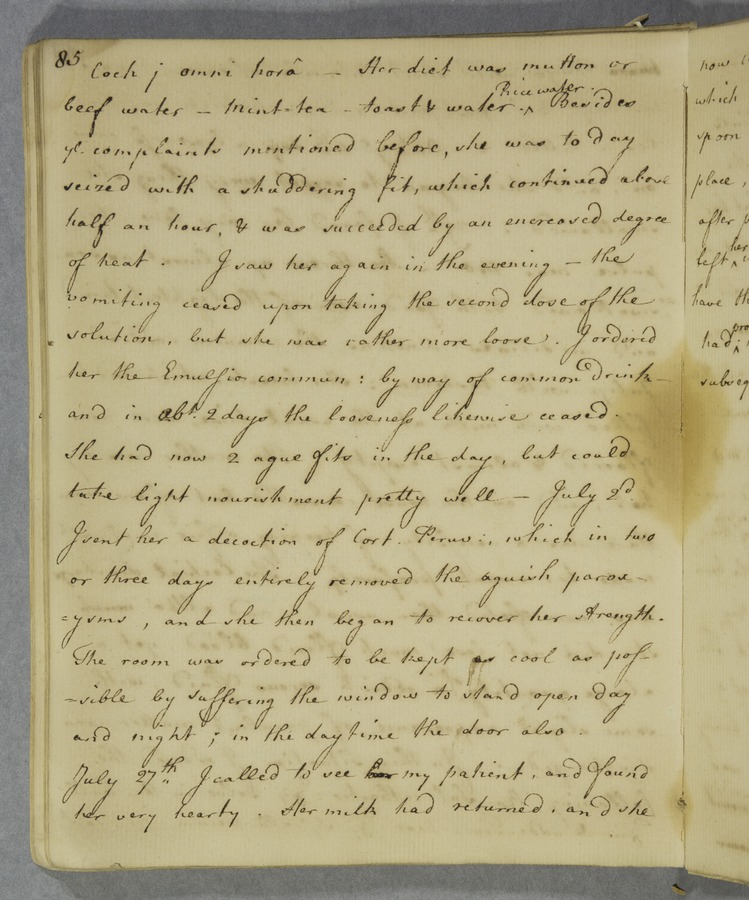 85
Coch j omni horâ – Her diet was mutton or
Rice water.
beef water – Mint-tea – toast & water. ^ Besides
ye. complaints mentioned before, she was to day
seized with a shuddering fit, which continued above
half an hour, & was succeeded by an encreased degree
of heat. I saw her again in the evening – the
vomiting ceased upon taking the second dose of the
solution, but she was rather more loose. I ordered
her the Emulsio commun: by way of common Drink –
and in abt. 2 days the looseness likewise ceased.
She had now 2 ague fits in the day, but could
take light nourishment pretty well – July 2d.
I sent her a decoction of Cort. Peruv:, which in two
or three days entirely removed the aguish parox-
=ysms, and she then began to recover her strength.
The room was ordered to be kept as cool as pos-
=sible by suffering the window to stand open day
and night; in the daytime the door also.
July 27th. I called to see my patient, and found
her very hearty. Her milk had returned, and she
now
which
spoon
place,
after
her
left ^
have th
had ^
subseq